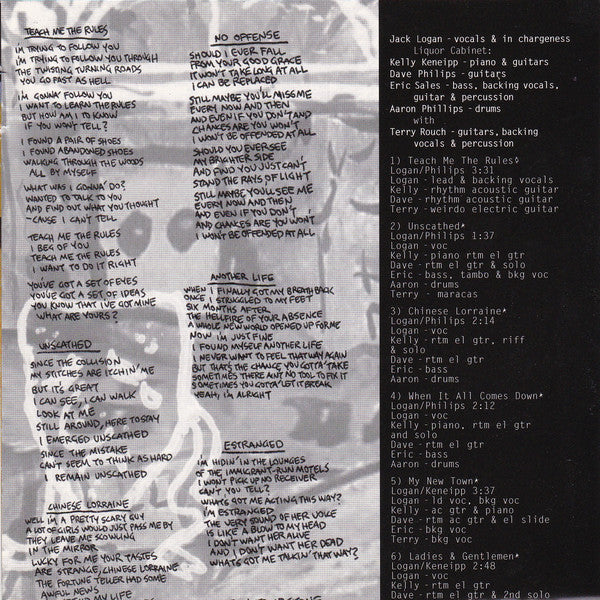 TEACH ME THE RULES
I'M TRYING TO FOLLOW YOU
I'M TRYING TO FOLLOW YOU THROUGH
THE TWISTING TURNING ROADS
YOU GO FAST AS HELL
I'M GONNA' FOLLOW YOU
I WANT TO LEARN THE RULES
BUT HOW AM I TO KNOW
IF YOU WON'T TELL?
I FOUND A PAIR OF SHOES
I FOUND ABANDONED SHOES
WALKING THROUGH THE WOODS
ALL BY MYSELF
WHAT WAS I GONNA' DO?
WANTED TO TALK TO YOU
AND FIND OUT WHAT YOU THOUGHT
~'CAUSE I CAN'T TELL
TEACH ME THE RULES
I BEG OF YOU
TEACH ME THE RULES
I WANT TO DO IT RIGHT
YOU'VE GOT A SET OF EYES
YOU'VE GOT A SET OF IDEAS
YOU KNOW THAT I'VE GOT MINE
WHAT ARE YOURS?
UNSCATHED
SINCE THE COLLISION
MY STITCHES ARE ITCHIN' ME
BUT IT'S GREAT
I CAN SEE, I CAN WALK
LOOK AT ME
STILL AROUND, HERE TO STAY
I EMERGED UNSCATHED
SINCE THE MISTAKE
CAN'T SEEM TO THINK AS HARD
I REMAIN UNSCATHED
CHINESE LORRAINE
WELL I'M A PRETTY SCARY GUY
A LOT OF GIRLS WOULD JUST PASS ME BY
THEY LEAVE ME SCOWLING
IN THE MIRROR
LUCKY FOR ME YOUR TASTES
ARE STRANGE, CHINESE LORRAINE
THE FORTUNE TELLER HAD SOME
AWFUL NEWS
MY LIFE
NO OFFENSE
SHOULD I EVER FALL
FROM YOUR GOOD GRACE
IT WON'T TAKE LONG AT ALL
I CAN BE REPLACED
STILL MAYBE YOU'LL MISS ME
EVERY NOW AND THEN
AND EVEN IF YOU DON'T AND
CHANCES ARE YOU WON'T
I WON'T BE OFFENDED AT ALL
SHOULD YOU EVER SEE
MY BRIGHTER SIDE
AND FIND YOU JUST CAN'T
STAND THE RAYS OF LIGHT
STILL MAYBE YOU'LL SEE ME
EVERY NOW AND THEN
AND EVEN IF YOU DON'T
AND CHANCES ARE YOU WON'T
I WON'T BE OFFENDED AT ALL
ANOTHER LIFE
WHEN I FINALLY GOT MY BREATH BACK
ONCE I STRUGGLED TO MY FEET
SIX MONTHS AFTER
THE HELLFIRE OF YOUR ABSENCE
A WHOLE NEW WORLD OPENED UP FOR ME
NOW I'M JUST FINE
I FOUND MYSELF ANOTHER LIFE
I NEVER WANT TO FEEL THAT WAY AGAIN
BUT THAT'S THE CHANCE YOU GOTTA' TAKE
SOMETIMES THERE AIN'T NO TOOL TO FIX IT
SOMETIMES YOU GOTTA' LET IT BREAK
YEAH, I'M ALRIGHT
ESTRANGED
I'M HIDIN' IN THE LOUNGES
OF THE IMMIGRANT-RUN MOTELS
I WON'T PICK UP NO RECEIVER
CAN'T YOU TELL?
WHAT'S GOT ME ACTING THIS WAY?
I'M ESTRANGED
THE VERY SOUND OF HER VOICE
IS LIKE A BLOW TO MY HEAD
I DON'T WANT HER ALIVE
AND I DON'T WANT HER DEAD
WHAT'S GOT ME TALKIN' THAT WAY?
Jack Logan - vocals & in chargeness
Liquor Cabinet:
Kelly Keneipp - piano & guitars
Dave Philips - guitars
Eric Sales - bass, backing vocals,
guitar & percussion
Aaron Phillips - drums
with
Terry Rouch - guitars, backing
vocals & percussion
1) Teach Me The Rules◊
Logan/Philips 3:31
Logan - lead & backing vocals
Kelly - rhythm acoustic guitar
Dave - rhythm acoustic guitar
Terry - weirdo electric guitar
2) Unscathed*
Logan/Philips 1:37
Logan - voc
Kelly - piano rtm el gtr
Dave - rtm el gtr & solo
Eric - bass, tambo & bkg voc
Aaron - drums
Terry - maracas
3) Chinese Lorraine*
Logan/Philips 2:14
Logan - voc
Kelly - rtm el gtr, riff
& solo
Dave - rtm el gtr
Eric - bass
Aaron - drums
4) When It All Comes Down*
Logan/Philips 2:12
Logan - voc
Kelly - piano, rtm el gtr
and solo
Dave - rtm el gtr
Eric - bass
Aaron - drums
5) My New Town*
Logan/Keneipp 3:37
Logan - ld voc, bkg voc
Kelly - ac gtr & piano
Dave - rtm ac gtr & el slide
Eric - bkg voc
Terry - bkg voc
6) Ladies & Gentlemen*
Logan/Keneipp 2:48
Logan - voc
Kelly - rtm el gtr
Dave - rtm el gtr & 2nd solo